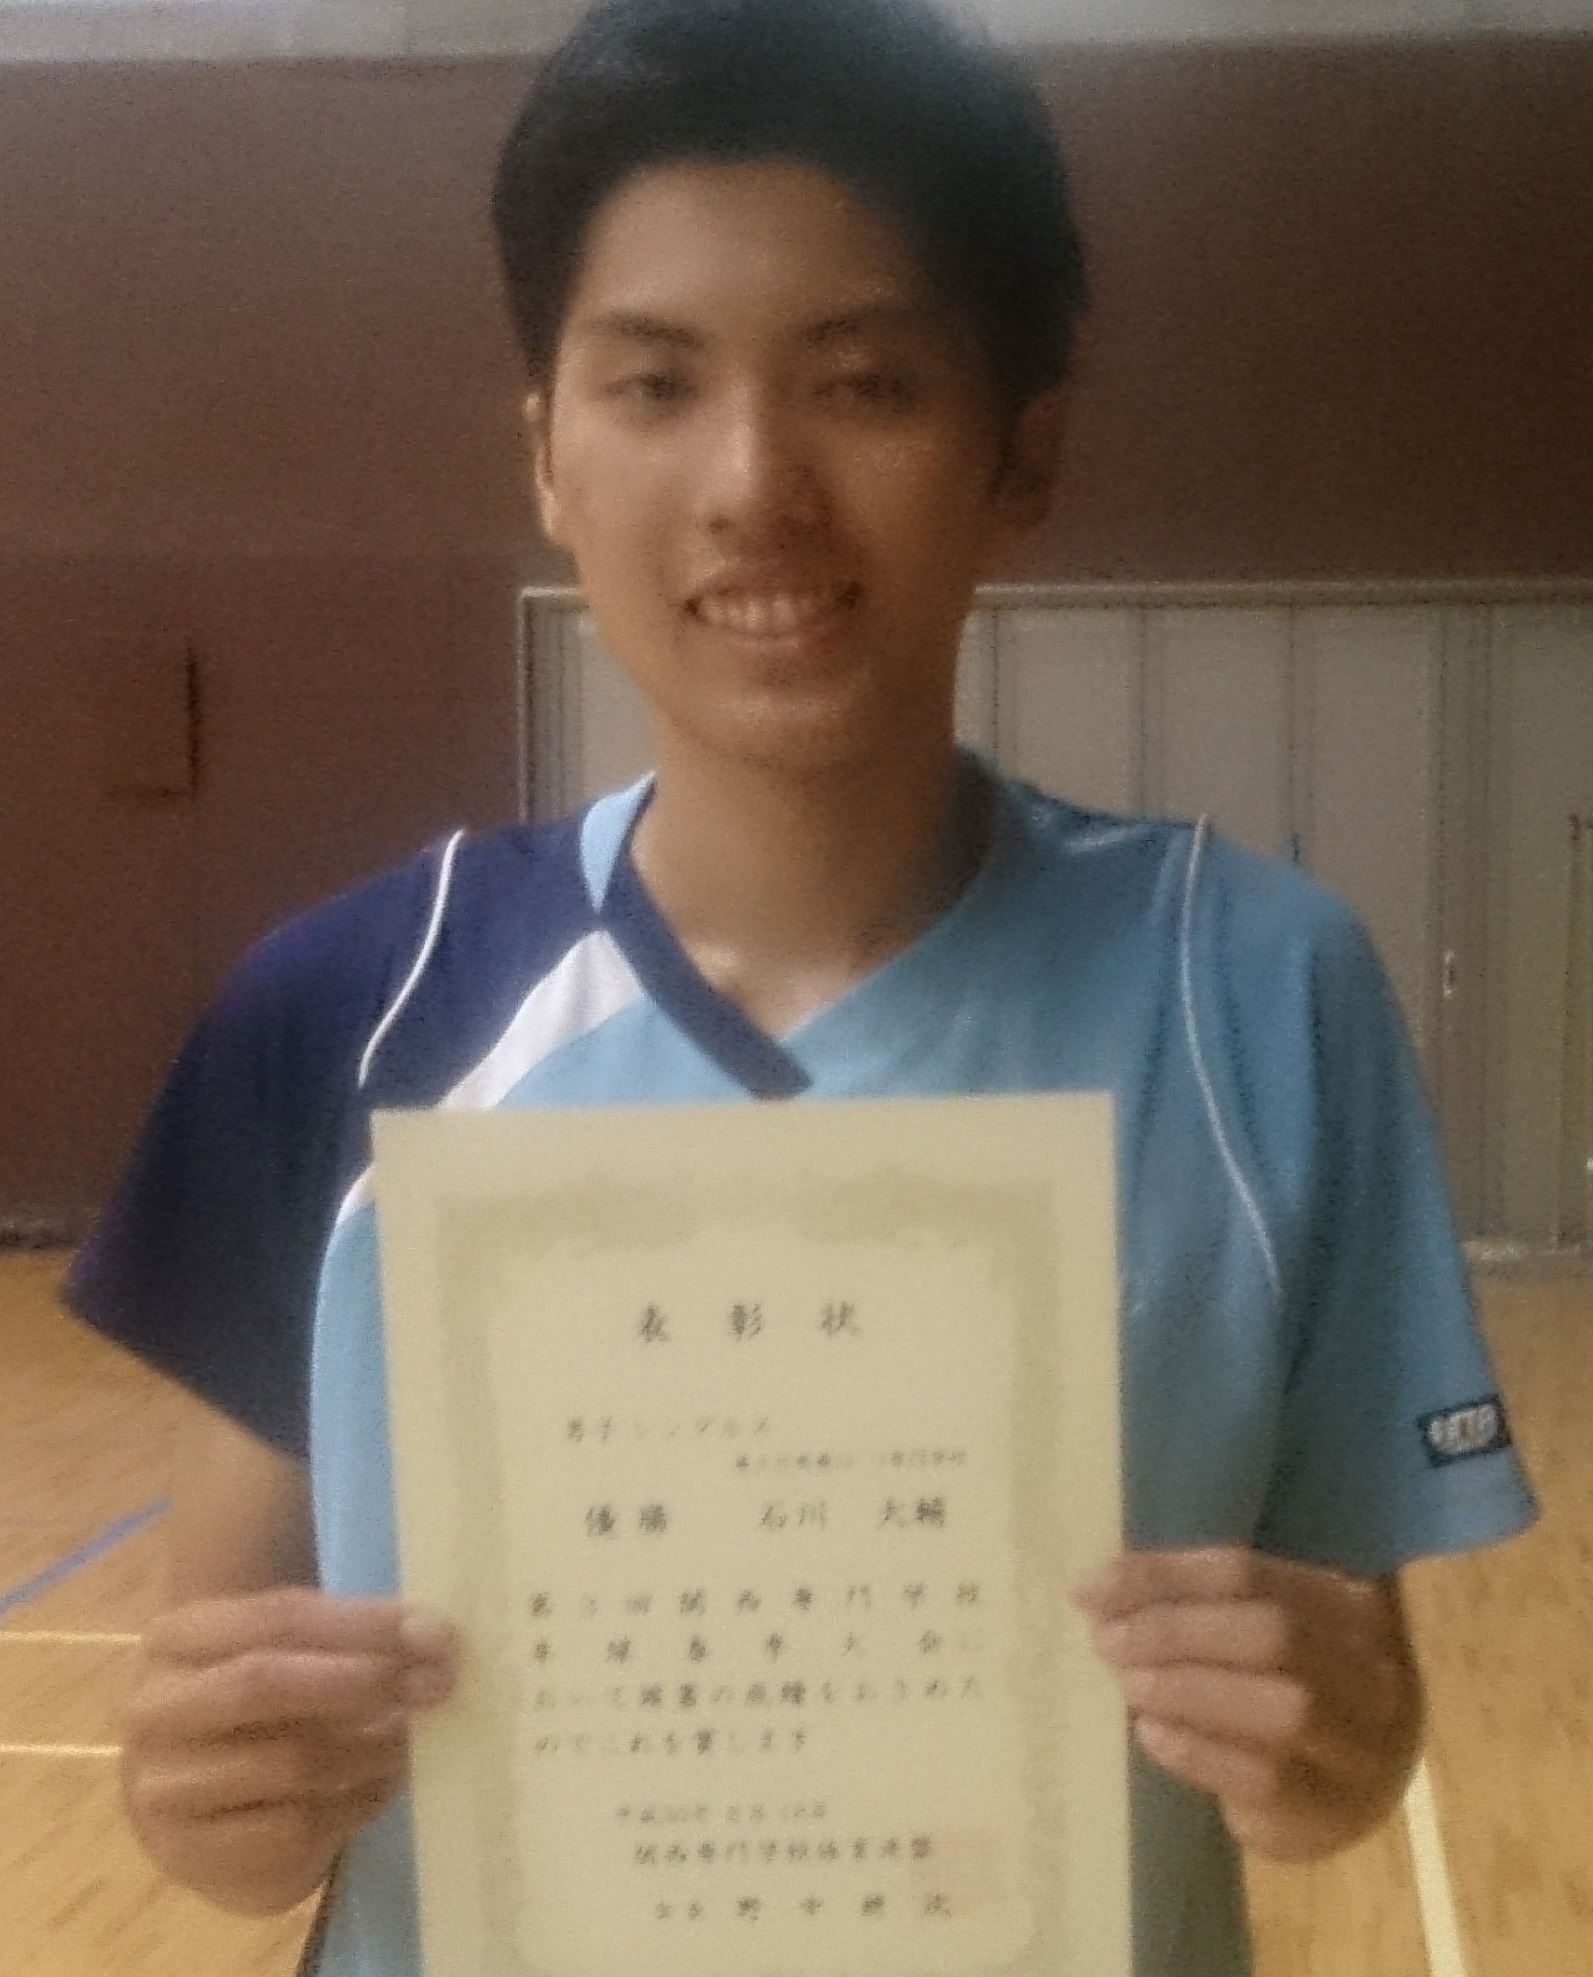 表彰状
男子シングルス
専門学校
優勝 石川 大輔
第 回関西専門学校
卓球春季大会に
おいて頭書の成績をおさめた
のでこれを賞します
平成30年
関西専門学校体育連盟
会長 野中